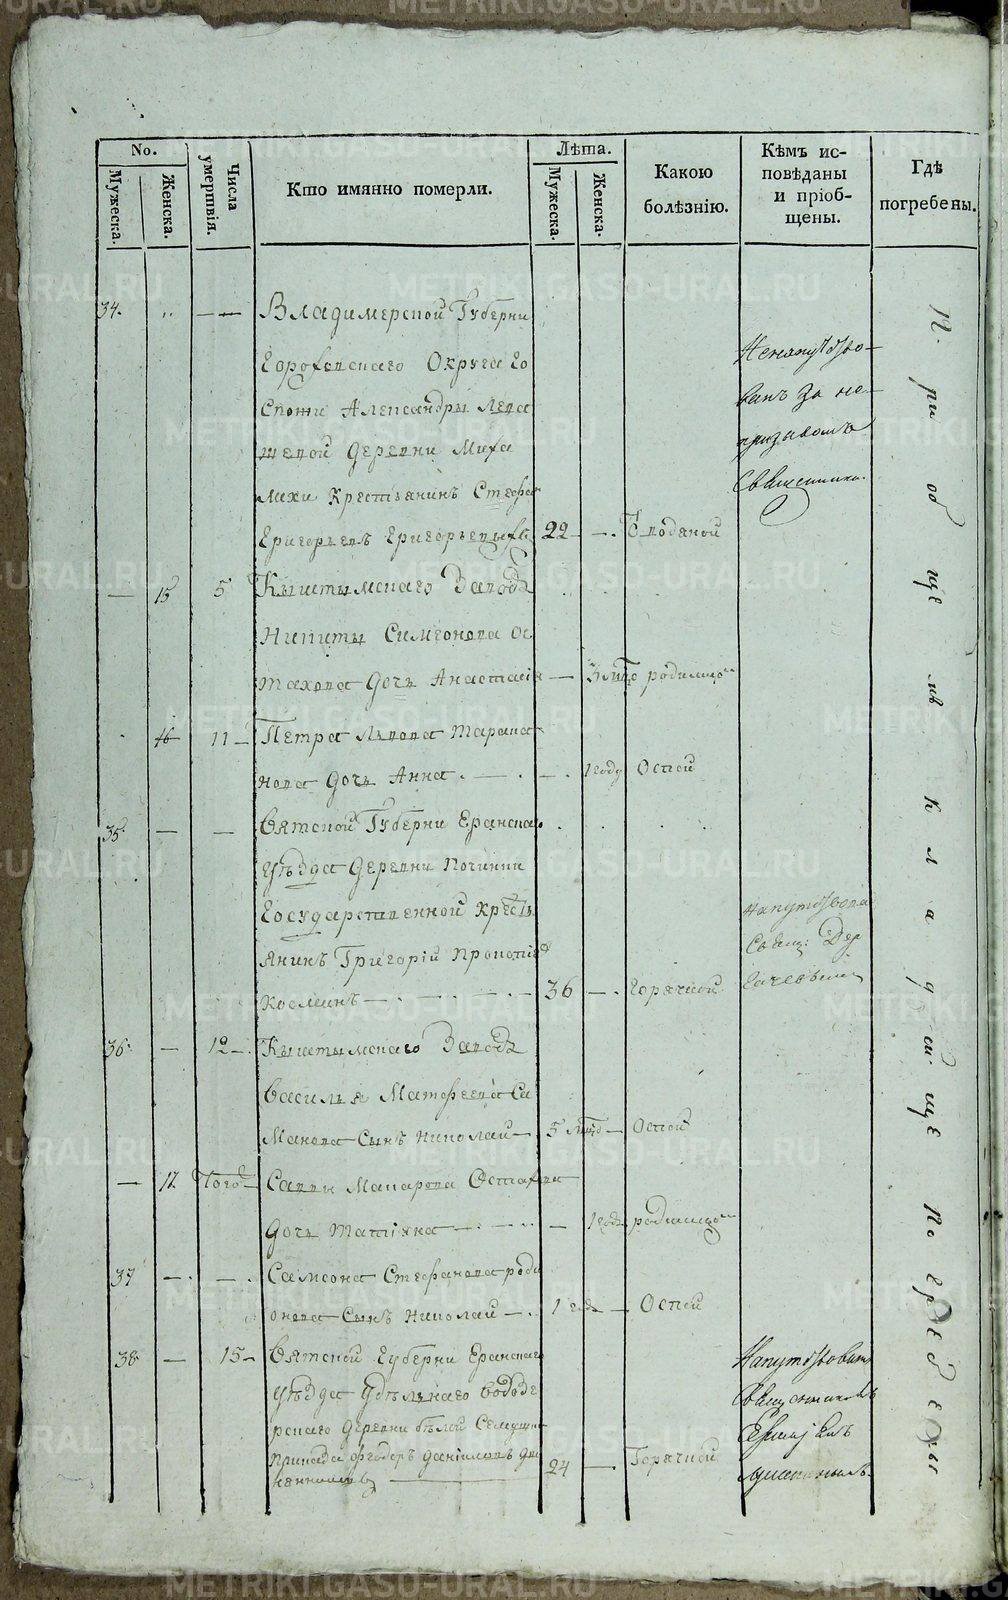 No.
Мужеска.
Женска.
Числа умертвія.
Кто имянно померли.
Лѣта.
Мужеска.
Женска.
Какою болѣзнію.
Кѣмъ ис-
повѣданы
и пріоб-
щены.
Гдѣ
погребены.
34. „ — — Владимерской Губерни
Горохов­скаго Округа Го
спожи Александры Лева
шевой деревни Миха
лихи Крестьянинъ Стефа
Григорьевъ Григорьевыхъ 22 — Водяной
Ненапутство-
ванъ за не-
призывомъ
Священника.
— 15 5 Кыштымскаго Завода
Никиты Симеонова Ос
тахова дочь Анастасія — родимцо
16 11 — Петра Львова Тарака
нова дочь Анна — 1 году Оспой
35 — — Вятской Губерни Еранска
Уѣзда деревни Починки
Государственной крестъ
янинъ Григорій Прокопіев
36 — Горячкой
Напутствова
Свящ:
36 — 12 — Кыштымскаго Завода
Василья Матфеева Си
манова Сынъ Николай — 5 лѣтъ — Оспой
— 17 Того — Саввы Макарова Остафева
дочь Татіяна — — 1 годъ родимцо
37 — — Самсона Стефанова роди
онова Сынъ Николай — 1 год — Оспой
38 — 15 — Вятской Губерни Еранскаго
Уѣзда Удѣльнаго
деревни бѣлой
приказа Феодоръ Даніиловъ
24 — Горячкой
Напутствованъ
Священникомъ
Сергіемъ
При обще мѣ кладбищѣ погребены
METRIKI.GASO-URAL.RU